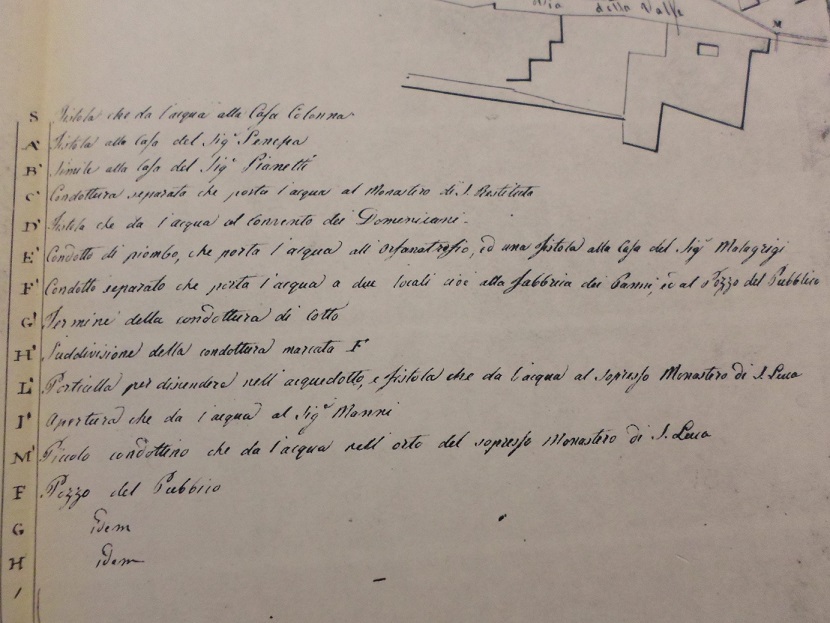 Via della Valle
M
S Fistola che da l'acqua alla Casa Colonna
A' Fistola alla Casa del Sig.r Penesa
B' Simile alla Casa del Sig.r Pianetti
C' Condottura separata che porta l'acqua al Monastero di S. Restituta
D' Fistola che da l'acqua al Convento dei Domenicani.
E' Condotto di piombo, che porta l'acqua all'Orfanatrofio, ed una fistola alla Casa del Sig.r Malagrigi
F' Condotto separato che porta l'acqua a due locali cioè alla fabbrica dei Panni, e al Pozzo del Pubblico
G' Termine della condottura di cotto
H' Suddivisione della condottura marcata F'
L' Porticella per discendere nell'acquedotto, e fistola che da l'acqua al sopresso Monastero di S. Luca
I' Apertura che da l'acqua al Sig.r Manni
M' Piccolo condottino che da l'acqua nell'orto del sopresso Monastero di S. Luca
F Pozzo del Pubblico
G idem
H idem